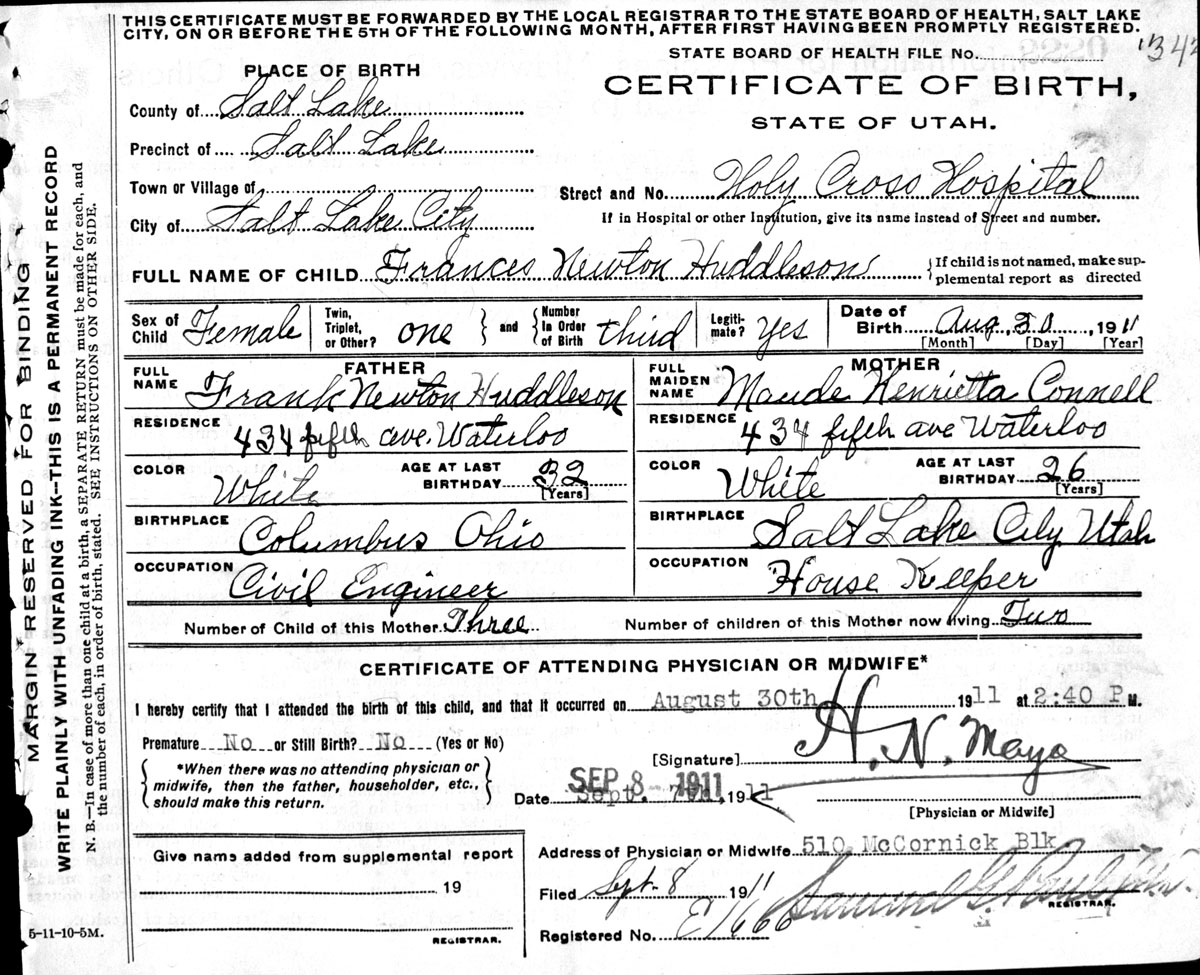 THIS CERTIFICATE MUST BE FORWARDED BY THE LOCAL REGISTRAR TO THE STATE BOARD OF HEALTH, SALT LAKE
CITY, ON OR BEFORE THE 5TH OF THE FOLLOWING MONTH, AFTER FIRST HAVING BEEN PROMPTLY REGISTERED.
STATE BOARD OF HEALTH FILE No.
PLACE OF BIRTH
CERTIFICATE OF BIRTH,
STATE OF UTAH.
County of Salt Lake
Precinct of Salt Lake
Town or Village of
Street and No. Holy Cross Hospital
City of Salt Lake City
If in Hospital or other Institution, give its name instead of Street and number.
FULL NAME OF CHILD Frances Newton Huddleson
{If child is not named, make sup-
plemental report as directed
Sex of Child Female
Twin, Triplet, or Other? one } and { Number In Order of Birth third
Legiti-mate? Yes
Date of Birth Aug 30, 1911
[Month] [Day] [Year]
FATHER
FULL NAME Frank Newton Huddleson
RESIDENCE 434 fifth ave. Waterloo
COLOR White
AGE AT LAST BIRTHDAY 32
[Years]
BIRTHPLACE Columbus Ohio
OCCUPATION Civil Engineer
MOTHER
FULL MAIDEN NAME Maude Henrietta Connell
RESIDENCE 434 fifth ave Waterloo
COLOR White
AGE AT LAST BIRTHDAY 26
[Years]
BIRTHPLACE Salt Lake City Utah
OCCUPATION House Keeper
Number of Child of this Mother Three
Number of children of this Mother now living Two
CERTIFICATE OF ATTENDING PHYSICIAN OR MIDWIFE*
I hereby certify that I attended the birth of this child, and that it occurred on August 30th 1911 at 2:40 P M.
Premature No or Still Birth? No (Yes or No)
{ *When there was no attending physician or
midwife, then the father, householder, etc.,
should make this return. }
[Signature] H. N. Mayo
SEP 8 1911
Date Sept. 7th, 1911
[Physician or Midwife]
Give name added from supplemental report
19
REGISTRAR.
Address of Physician or Midwife 510 McCornick Blk
Filed Sept-8 1911
Samuel G.
REGISTRAR.
Registered No. E1666
5-11-10-5M.
MARGIN RESERVED FOR BINDING
WRITE PLAINLY WITH UNFADING INK--THIS IS A PERMANENT RECORD
N. B.—In case of more than one child at a birth, a SEPARATE RETURN must be made for each, and
the number of each, in order of birth, stated. SEE INSTRUCTIONS ON OTHER SIDE.